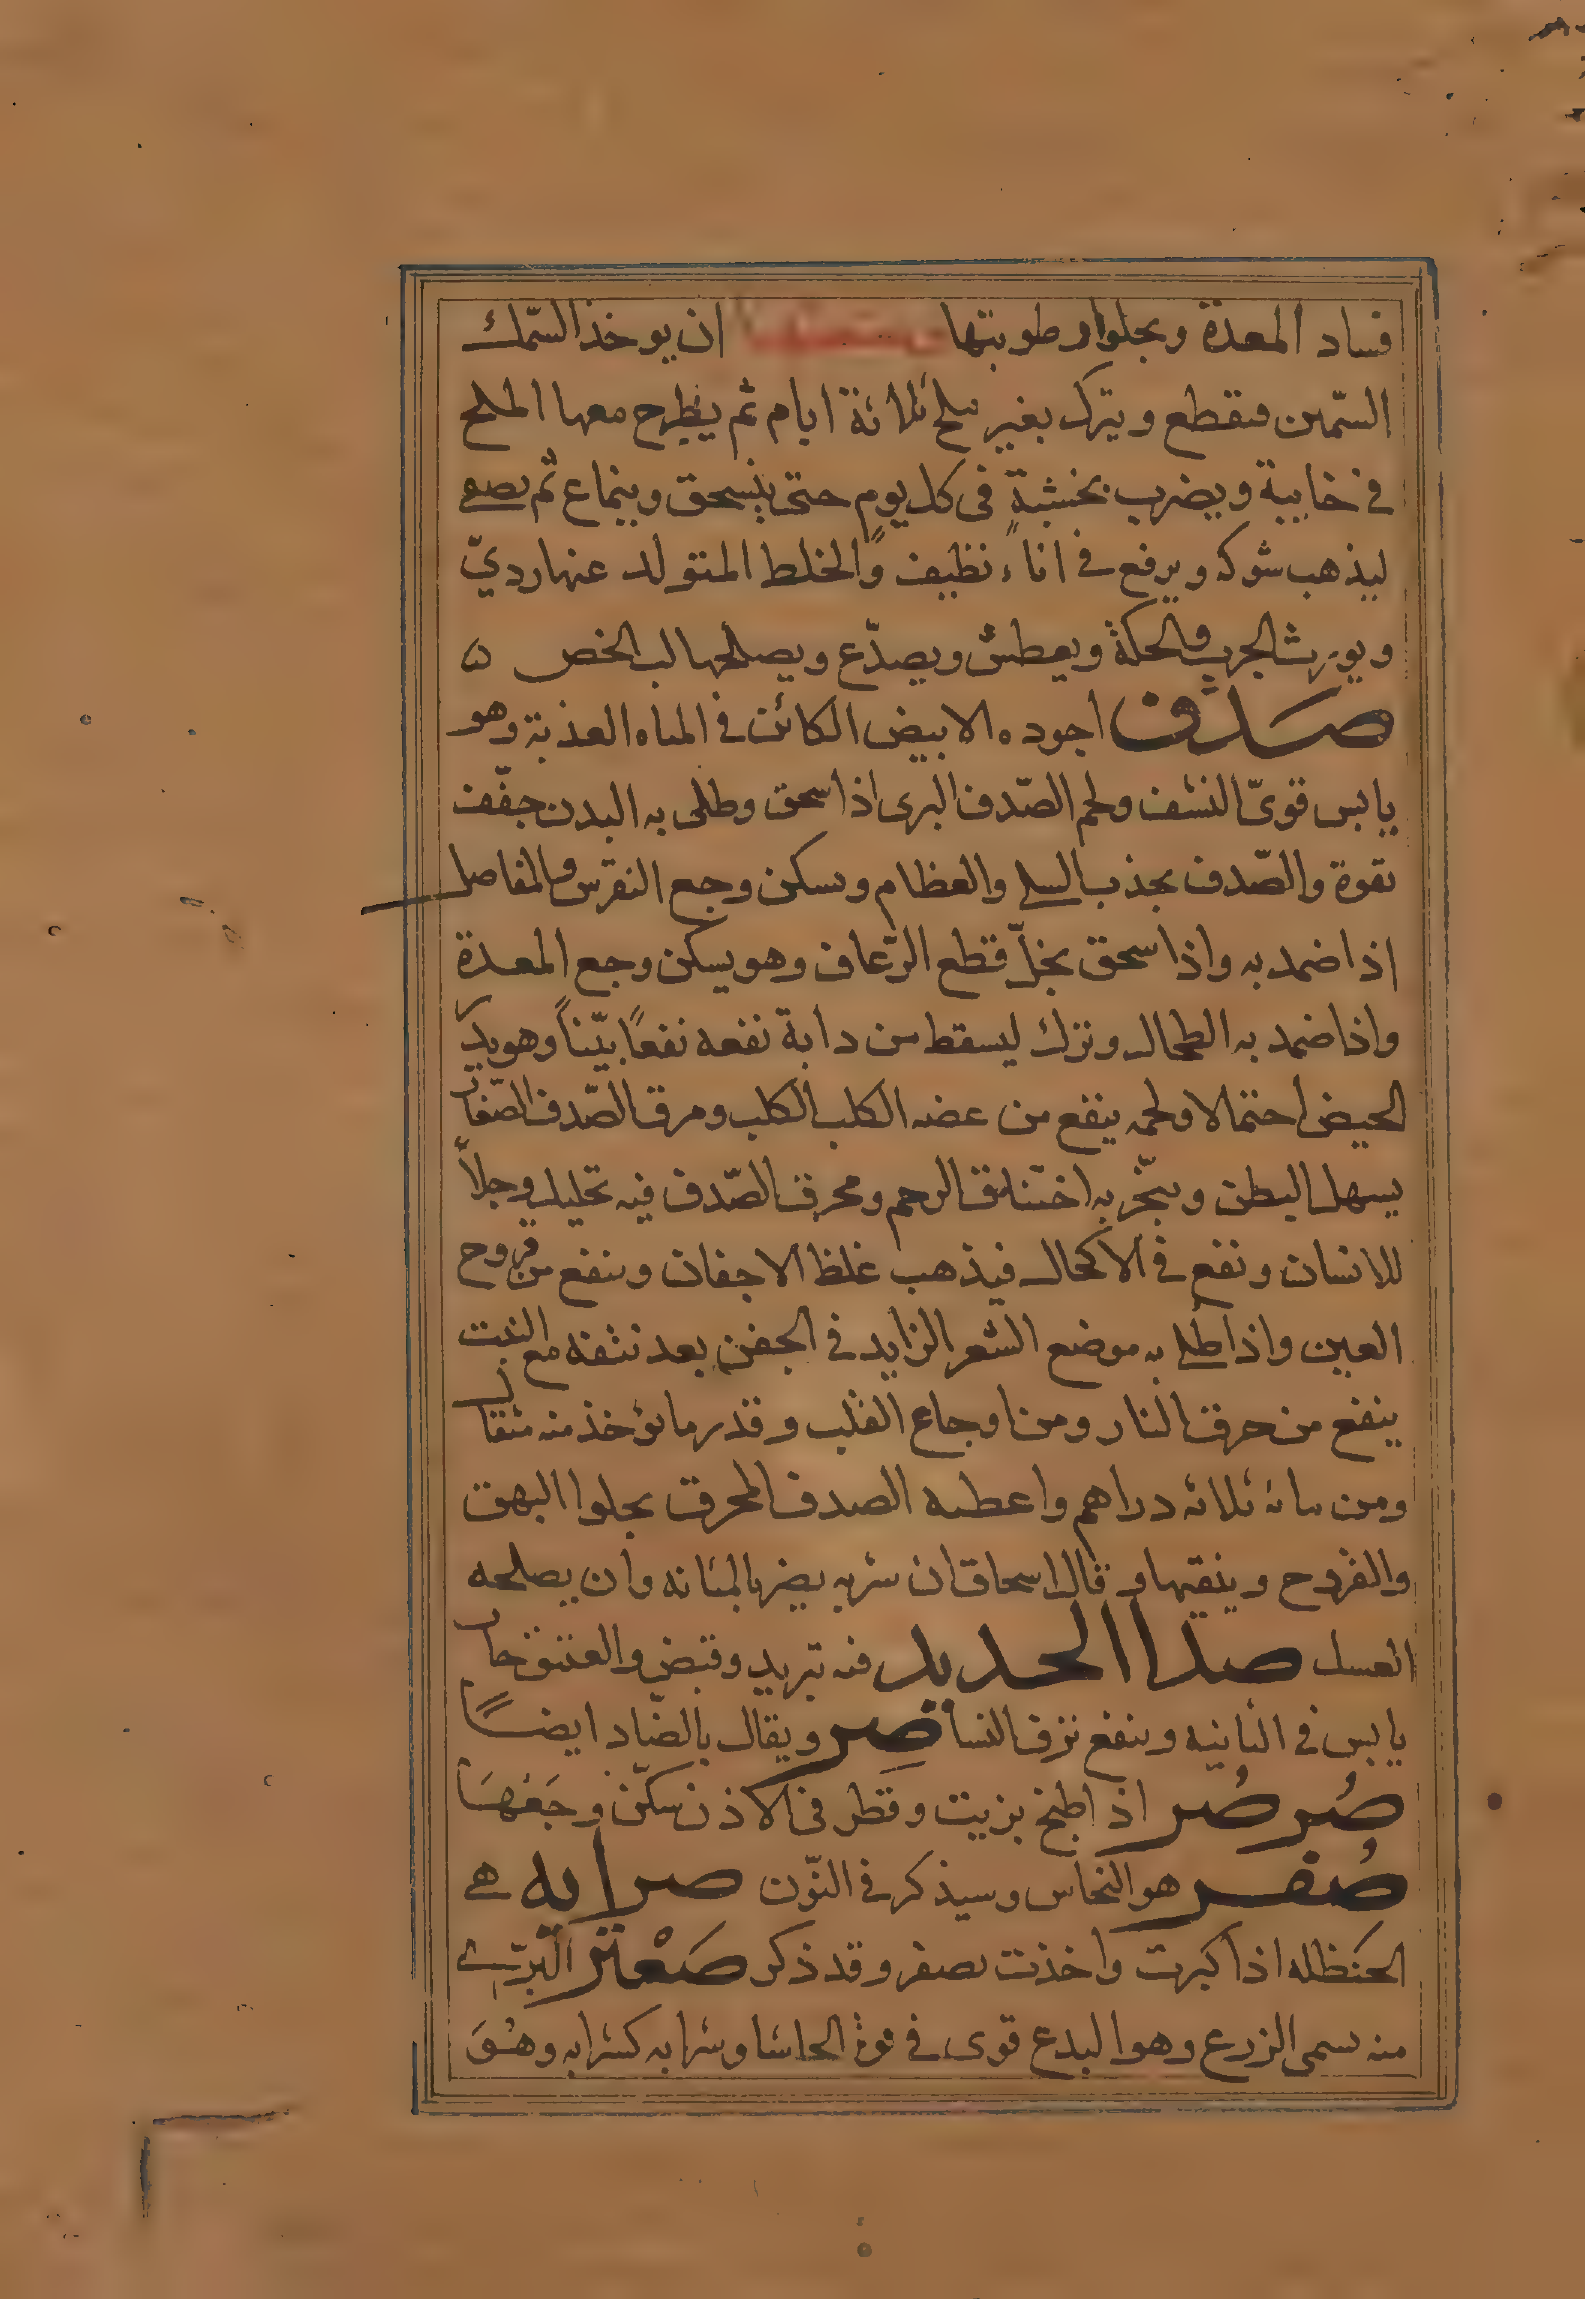 فساد المعدة ويجلوا رطوبتها ان يوخذ السّمك
السّمين فيقطع ويترك بغير ملح ثلاثة ايام ثم يطرح معها الملح
في خابية ويضرب بخشبةٍ في كل يوم حتى ينسحق وينماع ثم يصفى
ليذهب شوكه ويرفع في اناءٍ نظيف والخلط المتولد عنها رديّ
ويورث الجرب والحكة ويعطش ويصدّع ويصلحها لب الخص ه
صَدَف اجوده الابيض الكائن في المياه العذبة وهو
يابس قويّ النشف ولحم الصّدف البرى اذا سحق وطلى به البدن جفّف
بقوة والصّدف يجذب السلى والعظام ويسكن وجع النقرس والمفاصل
اذا ضمد به واذا سحق بخلّ قطع الرّعاف وهو يسكن وجع المعدة
واذا ضمد به الطحال وترك ليسقط من دابة نفعه نفعًا بيّنًا وهو يدر
الحيض احتمالا ولحمه ينفع من عضه الكلب الكلب ومرق الصّدف الصّغار
يسهل البطن ويبخّر به اختناق الرحم ومحرق الصّدف فيه تحليل وجلاّ
للانسان ونفع في الاكحال فيذهب غلظ الاجفان وينفع من قروح
العين واذا طلى به موضع الشعر الزايد في الجفن بعد نتفه مع النبت
ينفع من حرق النار ومن اوجاع القلب وقدر ما يؤخذ منه مثقال
ومن مائه ثلاثه دراهم واعطيه الصدف المحرق يجلوا البهق
والقروح وينقيها وقال اسحاق ان شربه يضر بالمثانه وان يصلحه
العسل صدا الحديد فيه تبريد وقبض والعتيق حار
يابس في الثانيه وينفع نزف النسا صِر ويقال بالضّاد ايضًا
صُرصُر اذا طبخ بزيت وقطر في الاذن سكّن وجَعَهَا
صُفر هو النحاس وسيذكر في النّون صرايه هي
الحنظله اذا كبرت واخذت تصفر وقد ذكر صَعْتر البرّي
منه يسمى الزرع وهو البدع قوى في قوة الحاشا وشرابه كشرابه وهُوَ